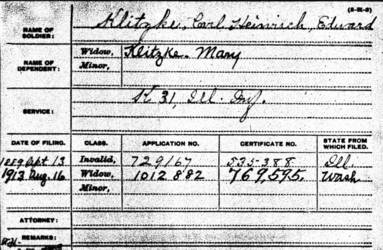 (3-211-5)
NAME OF SOLDIER: Klitzke, Carl Heinrich, Edward
NAME OF DEPENDENT: Widow, Klitzke Mary
Minor,
SERVICE: K 31, Ill. Inf.
DATE OF FILING. CLASS. APPLICATION NO. CERTIFICATE NO. STATE FROM WHICH FILED.
1889 Sept. 13 Invalid, 729167 535-388 Ill.
1913 Aug. 16 Widow, 1012882 769,595. Wash
Minor,
ATTORNEY:
REMARKS: